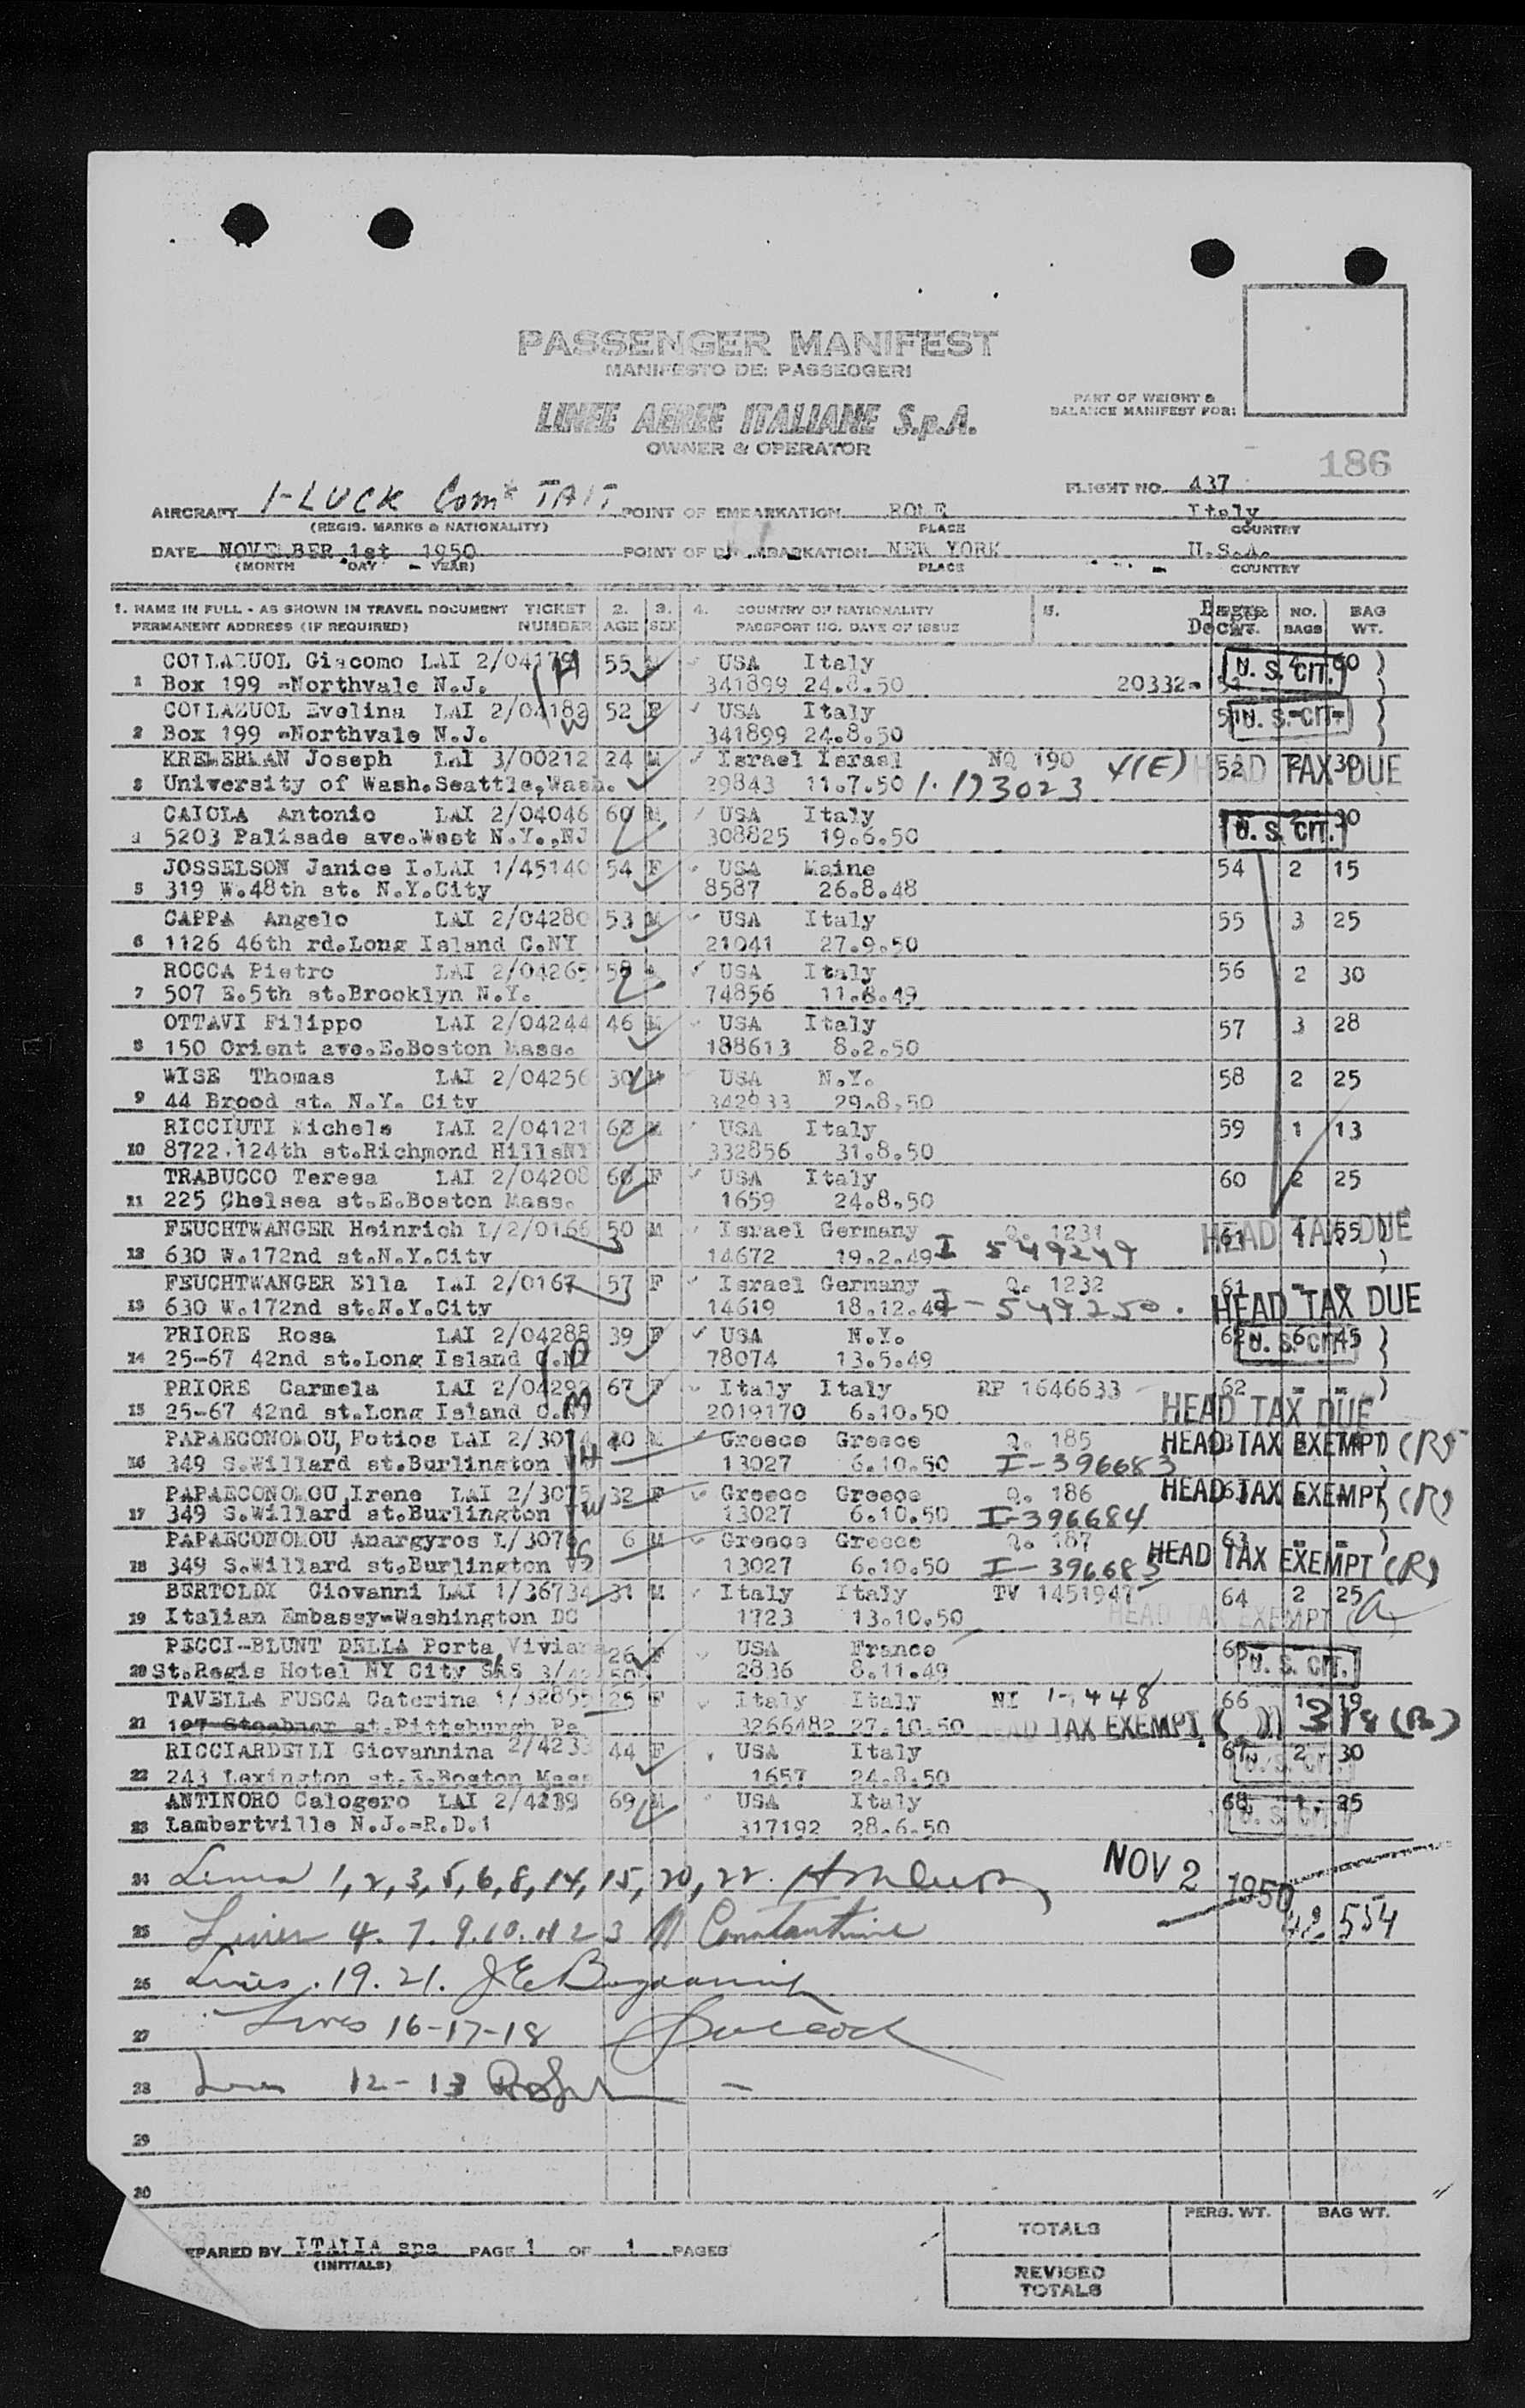 PASSENGER MANIFEST
MANIFESTO DEI PASSEGGERI
LINEE AEREE ITALIANE S.p.A.
OWNER & OPERATOR
PART OF WEIGHT &
BALANCE MANIFEST FOR:
186
FLIGHT NO. 437
AIRCRAFT I-LUCK Com TAIT POINT OF EMBARKATION ROME Italy
(REGIS. MARKS & NATIONALITY) PLACE COUNTRY
DATE NOVEMBER 1st 1950 POINT OF NEW YORK U.S.A.
(MONTH DAY YEAR) PLACE COUNTRY
1. NAME IN FULL - AS SHOWN IN TRAVEL DOCUMENT TICKET 2. 3. 4. COUNTRY OF NATIONALITY 5. Bagg. NO. BAG
PERMANENT ADDRESS (IF REQUIRED) NUMBER AGE SEX PASSPORT NO. DATE OF ISSUE Decl. BAGS WT.
COLLAZUOL Giacomo LAI 2/04179 55 USA Italy U. S. CIT. )
1 Box 199 -Northvale N.J. 341899 24.8.50 20332-
COLLAZUOL Evelina LAI 2/04182 52 F USA Italy U. S. CIT. )
2 Box 199 -Northvale N.J. 341899 24.8.50
KREMERMAN Joseph LAI 3/00212 24 M Israel Israel NQ 190 4(E) 52 HEAD TAX DUE
3 University of Wash.Seattle,Wash. 29843 11.7.50 1-173023
CAIOLA Antonio LAI 2/04046 60 M USA Italy U. S. CIT.
4 5203 Palisade ave.West N.Y.,NJ 308825 19.6.50
JOSSELSON Janice I.LAI 1/45140 54 F USA Maine 54 2 15
5 319 W.48th st. N.Y.City 8587 26.8.48
CAPPA Angelo LAI 2/04280 53 M USA Italy 55 3 25
6 1126 46th rd.Long Island C.NY 21041 27.9.50
ROCCA Pietro LAI 2/04265 USA Italy 56 2 30
7 507 E.5th st.Brooklyn N.Y. 74856 11.8.49
OTTAVI Filippo LAI 2/04244 46 M USA Italy 57 3 28
8 150 Orient ave.E.Boston Mass. 188613 8.2.50
WISE Thomas LAI 2/04256 30 USA N.Y. 58 2 25
9 44 Brood st. N.Y. City 342933 29.8.50
RICCIUTI Michele LAI 2/04121 60 M USA Italy 59 1 13
10 8722.124th st.Richmond HillsNY 332856 31.8.50
TRABUCCO Teresa LAI 2/04208 60 F USA Italy 60 2 25
11 225 Chelsea st.E.Boston Mass. 1659 24.8.50
FEUCHTWANGER Heinrich L/2/0166 50 M Israel Germany Q. 1231 61 4 55 HEAD TAX DUE
12 630 W.172nd st.N.Y.City 14672 19.2.49 I 549249
FEUCHTWANGER Ella LAI 2/0167 57 F Israel Germany Q. 1232 61 - -
13 630 W.172nd st.N.Y.City 14619 18.12.49 I-549250. HEAD TAX DUE
PRIORE Rosa LAI 2/04288 39 F USA N.Y. 62 6 45 )
14 25-67 42nd st.Long Island C.NY 78074 13.5.49 U. S. CIT.
PRIORE Carmela LAI 2/04292 67 F Italy Italy RP 1646633 62 - - )
15 25-67 42nd st.Long Island C.NY 2019170 6.10.50 HEAD TAX DUE
PAPAECONOMOU, Fotios LAI 2/3074 40 M Greece Greece Q. 185 HEAD TAX EXEMPT (R)
16 349 S.Willard st.Burlington 13027 6.10.50 I-396683
PAPAECONOMOU Irene LAI 2/3075 32 F Greece Greece Q. 186 HEAD TAX EXEMPT (R)
17 349 S.Willard st.Burlington 13027 6.10.50 I-396684
PAPAECONOMOU Anargyros L/3076 6 M Greece Greece Q. 187 63 - - )
18 349 S.Willard st.Burlington 13027 6.10.50 I-396685 HEAD TAX EXEMPT (R)
BERTOLDI Giovanni LAI 1/36734 31 M Italy Italy TV 1451947 64 2 25
19 Italian Embassy-Washington DC 1723 13.10.50 HEAD TAX EXEMPT
PECCI-BLUNT DELLA Porta, Viviana 26 F USA France 65
20 St.Regis Hotel NY City SAS 2836 8.11.49 U. S. CIT.
TAVELLA FUSCA Caterina 1/32855 25 F Italy Italy NI 1-448 66 1 19
21 st.Pittsburgh Pa 3266482 27.10.50 HEAD TAX EXEMPT (R)
RICCIARDELLI Giovannina 2/4233 44 F USA Italy 67 2 30
22 243 Lexington st.E.Boston Mass 1657 24.8.50 U. S. CIT.
ANTINORO Calogero LAI 2/4239 69 M USA Italy 68 1 25
23 Lambertville N.J.-R.D.1 317192 28.6.50 U. S. CIT.
24 Lines 1,2,3,5,6,8,14,15,20,22. NOV 2 1950
25 Lines 4. 7. 9. 10. 11 23 Constantine 42,554
26 Lines. 19. 21.
27 Lines 16-17-18
28 Lines 12-13
29
30
PREPARED BY ITALIA spa PAGE 1 OF 1 PAGES
(INITIALS)
PERS. WT. BAG WT.
TOTALS
REVISED
TOTALS